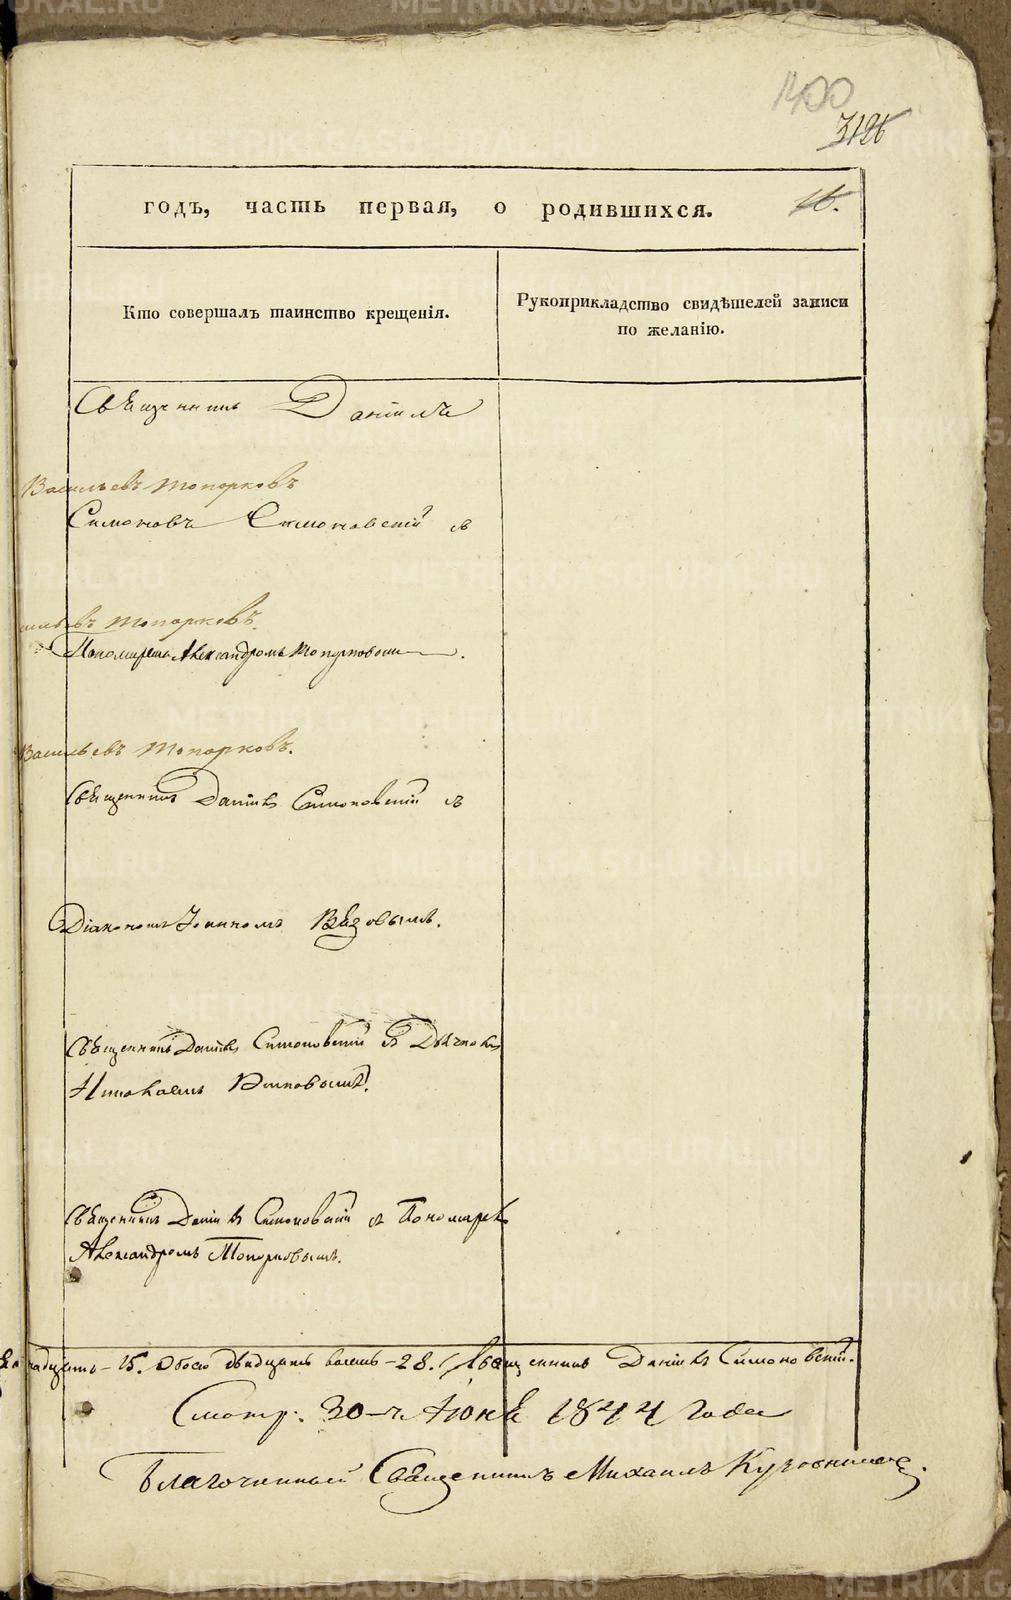 1400
3126
годъ, часть первая, о родившихся. 16.
Кто совершалъ таинство крещенія.
Рукоприкладство свидѣтелей записи
по желанію.
Священникъ Даніилъ
Васильевъ Топорковъ
Симоновъ Симоновскій и
Топорковъ.
Пономаремъ Александромъ Топорковымъ.
Васильевъ Топорковъ.
Священникъ Даніилъ Симоновскій и
Діакономъ Іоанномъ Вѣзовымъ.
Священникъ Даніилъ Симоновскій и Дьячокъ
Священникъ Даніилъ Симоновскій и Пономаремъ
Александромъ Топорковымъ.
15. Обоего двадцать восемь - 28. Священникъ Даніилъ Симоновскій.
Смотр: 30-го Іюня 1844 года
Благочинный Священникъ Михаилъ